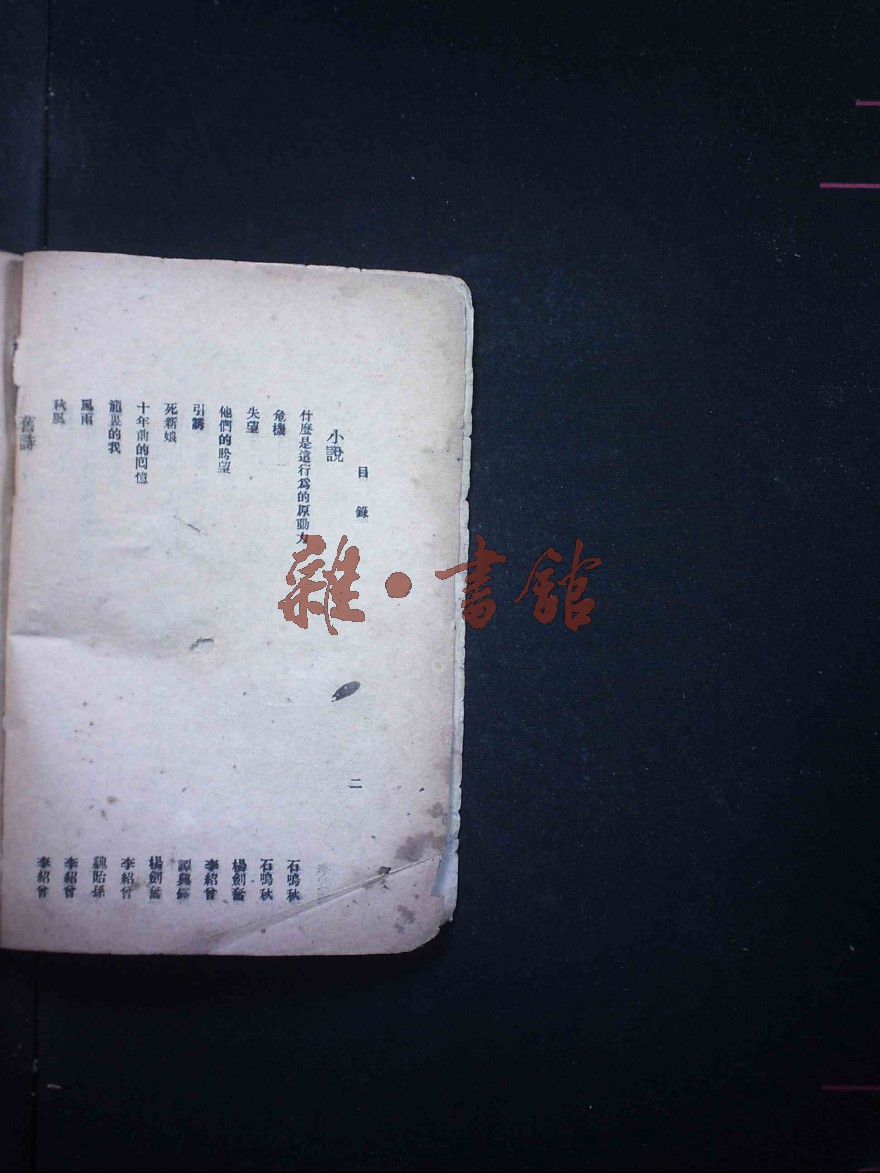 目錄 二
小說
什麼是這行爲的原動力 石鳴秋
危機 石鳴秋
失望 楊劍奮
他們的盼望 李紹曾
引誘
死新娘 楊劍奮
十年前的回憶 李紹曾
籠裏的我 魏貽孫
風雨 李紹曾
秋風 李紹曾
舊詩
雜·書館